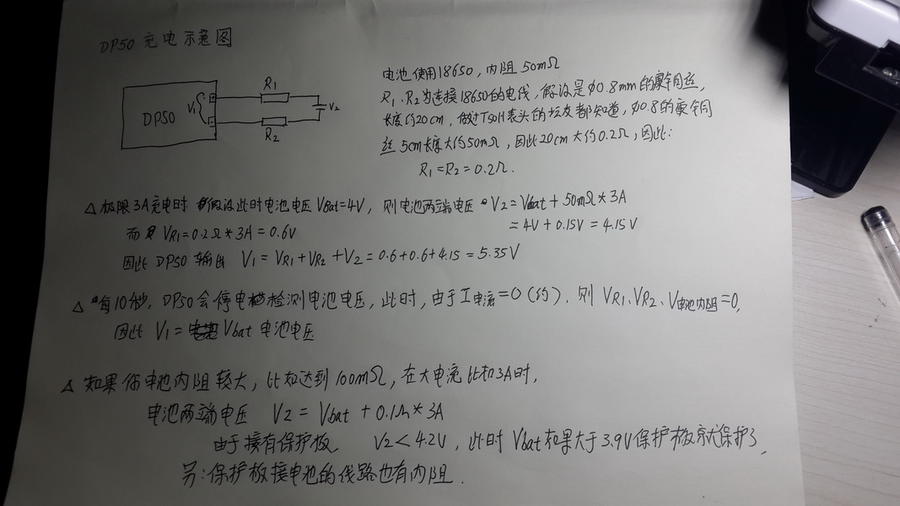 DP50 充电示意图
电池使用18650，内阻50mΩ
R1、R2为连接18650的电线，假设是φ0.8mm的康铜丝
长度约20cm，做过T50H表头的坛友都知道，φ0.8的康铜
丝5cm长度大约50mΩ，因此20cm大约0.2Ω，因此：
R1=R2=0.2Ω.
R1
V1
DP50
V2
R2
△极限3A充电时 假设此时电池电压Vbat=4V，则电池两端电压 V2=Vbat+50mΩ*3A
=4V+0.15V=4.15V
而 VR1=0.2Ω*3A=0.6V
因此DP50输出 V1=VR1+VR2+V2=0.6+0.6+4.15=5.35V
△每10秒，DP50会停电检测电池电压，此时，由于I电流=0(约)，则VR1、VR2、V电池内阻=0，
因此 V1=Vbat电池电压
△如果你电池内阻较大，比如达到100mΩ，在大电流比如3A时，
电池两端电压 V2=Vbat+0.1Ω*3A
由于接有保护板 V2<4.2V，此时Vbat如果大于3.9V保护板就保护了
另：保护板接电池的线路也有内阻.